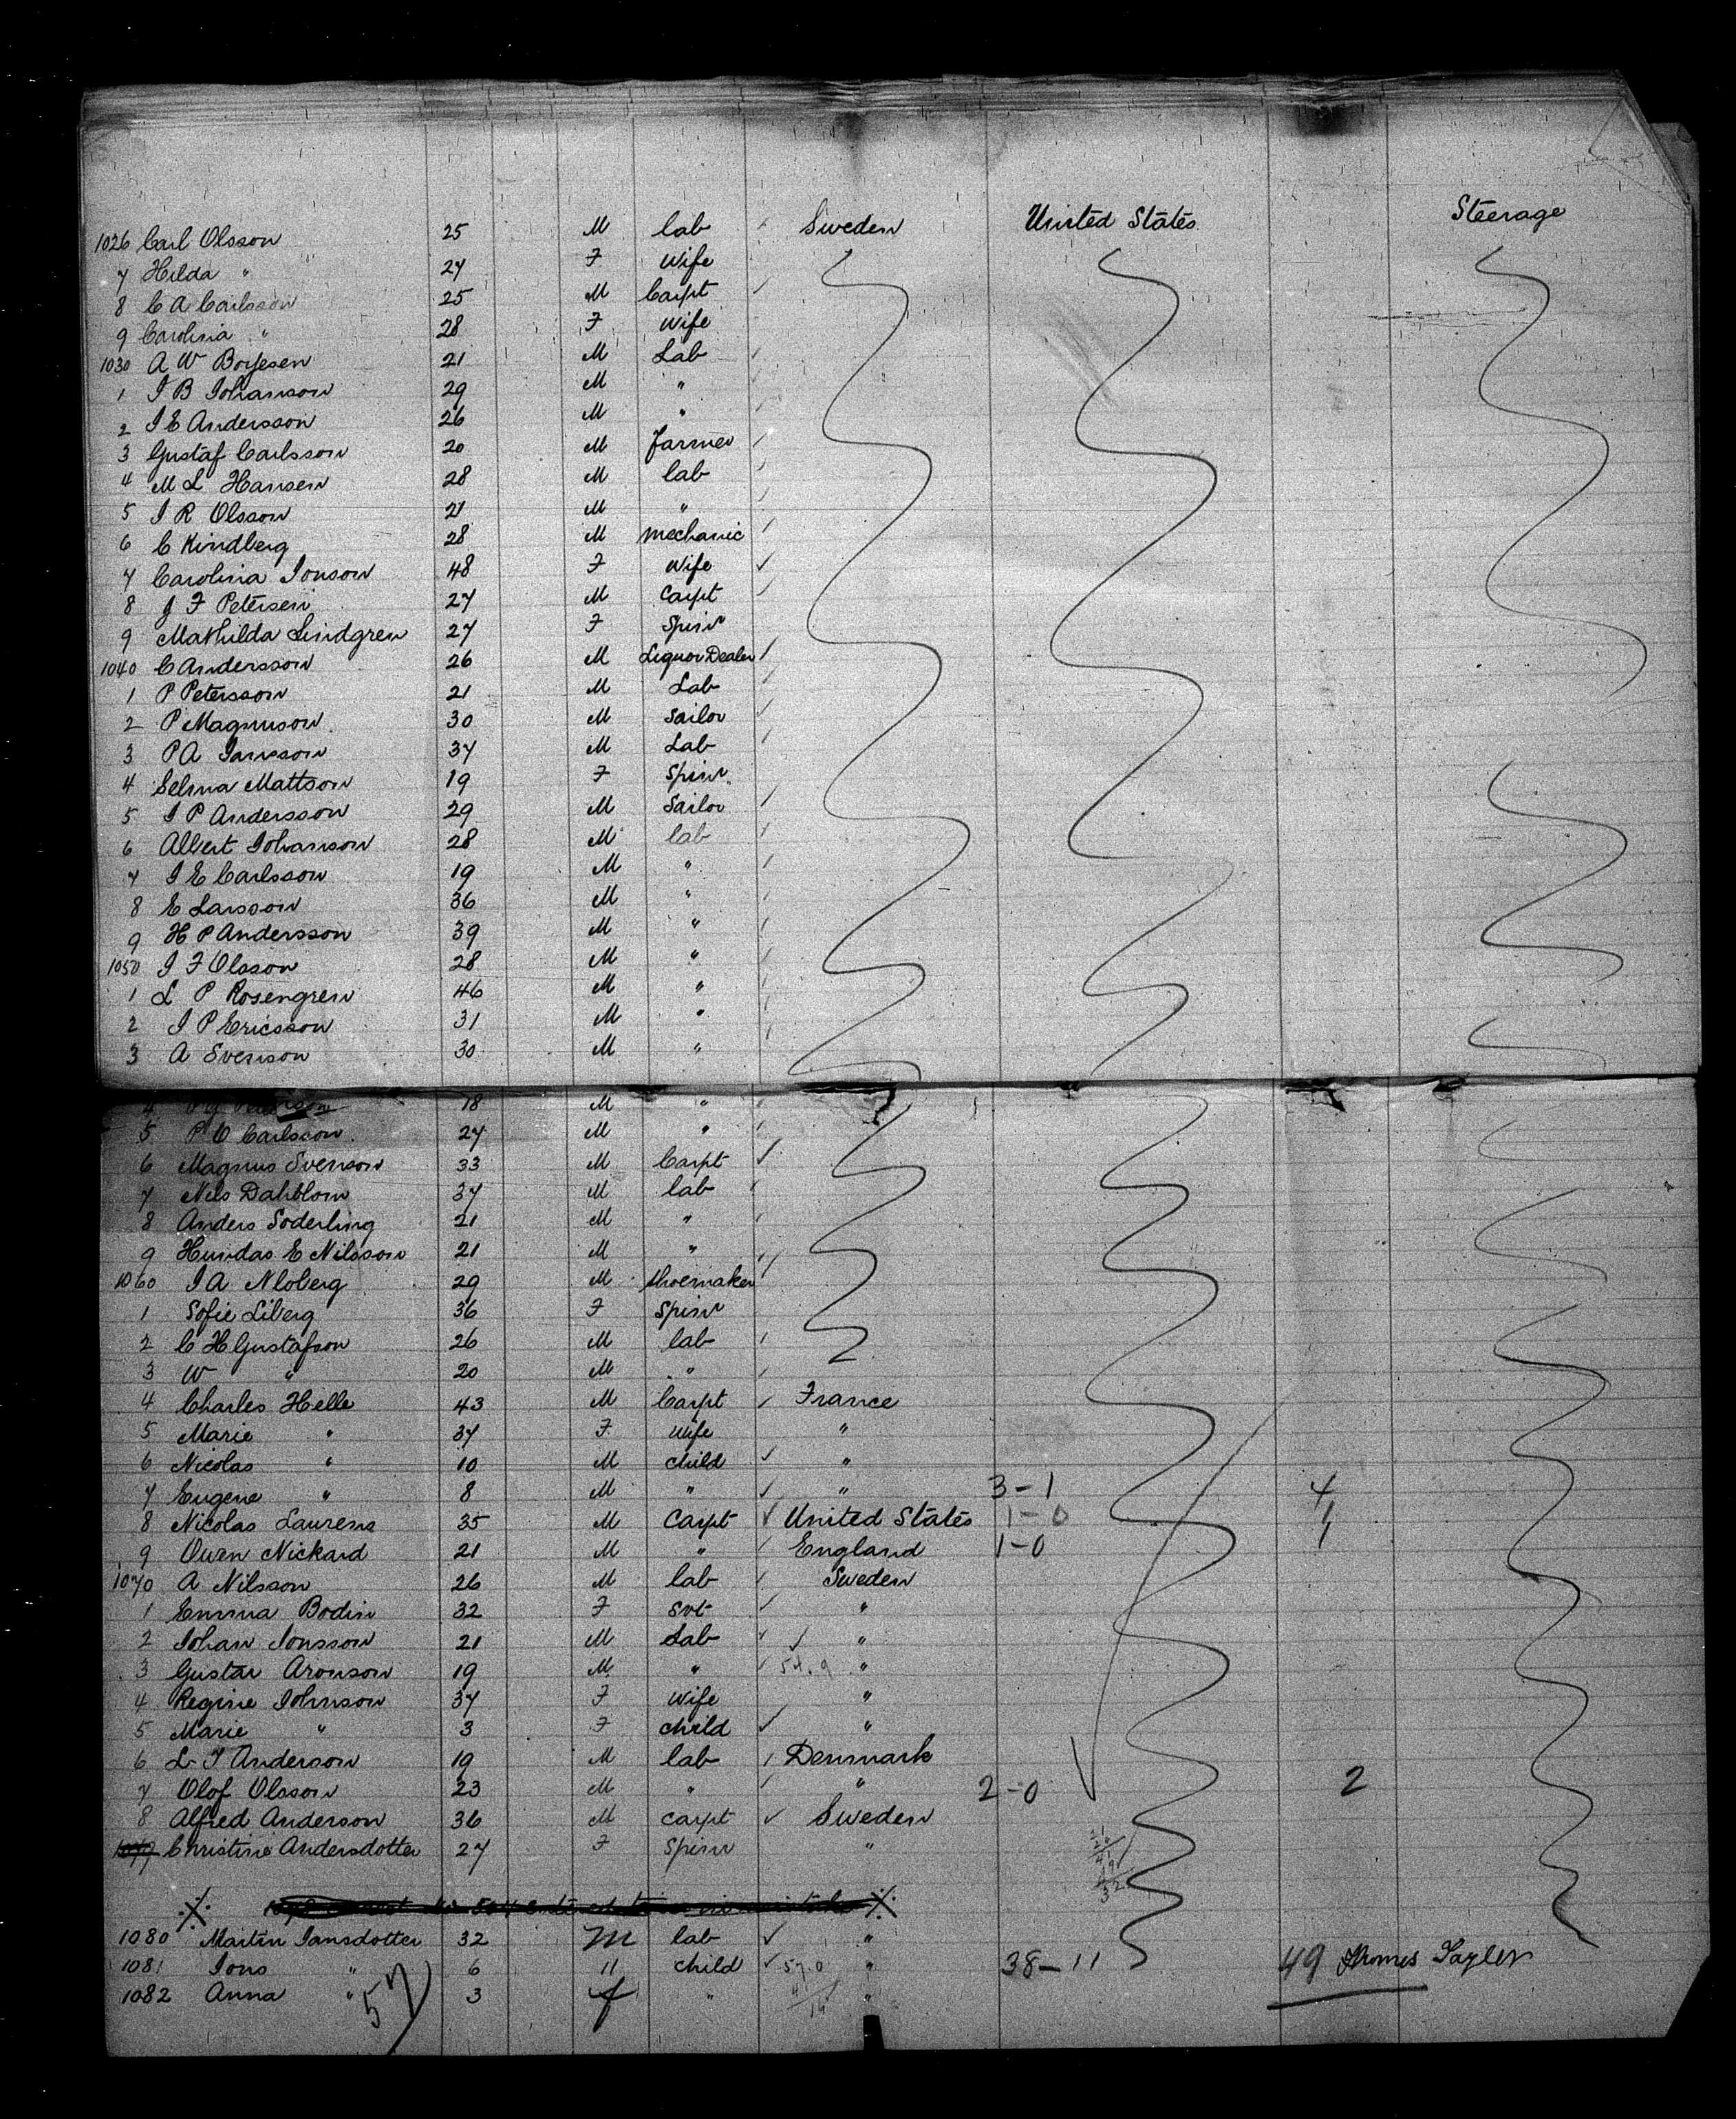 Sweden United States Steerage
1026 Carl Olsson 25 M lab
7 Hilda " 27 F Wife
8 C A Carlsson 25 M Carpt
9 Carolina " 28 F Wife
1030 A W Boyesen 21 M Lab
1 J B Johanson 29 M "
2 J E Andersson 26 M "
3 Gustaf Carlsson 20 M Farmer
4 M L Hansen 28 M lab
5 J R Olsson 21 M "
6 C Kindberg 28 M mechanic
7 Carolina Jonson 48 F Wife
8 J F Petersen 27 M Carpt
9 Mathilda Lindgren 27 F Spinr
1040 C Andersson 26 M Liquor Dealer
1 P Petersson 21 M Lab
2 P Magnuson 30 M Sailor
3 P A Jansson 37 M Lab
4 Selma Mattson 19 F Spinr
5 J P Andersson 29 M Sailor
6 Albert Johanson 28 M lab
7 J E Carlsson 19 M "
8 E Larsson 36 M "
9 H P Andersson 39 M "
1050 J F Olsson 28 M "
1 L P Rosengren 46 M "
2 J P Ericsson 31 M "
3 A Svenson 30 M "
4 18 M "
5 P O Carlsson 27 M "
6 Magnus Svenson 33 M Carpt
7 Nils Dahlblom 37 M lab
8 Anders Soderling 21 M "
9 Hundas E Nilsson 21 M "
1060 J A Nloberg 29 M Shoemaker
1 Sofie Liberg 36 F Spinr
2 C H Gustafson 26 M lab
3 W " 20 M "
4 Charles Helle 43 M Carpt France
5 Marie " 37 F Wife "
6 Nicolas " 10 M child "
7 Eugene " 8 M " " 3-1 4
8 Nicolas Laurens 35 M Carpt United States 1-0 1
9 Owen Nickard 21 M " England 1-0 1
1070 A Nilsson 26 M lab Sweden
1 Emma Bodin 32 F Svt "
2 Johan Jonsson 21 M Lab "
3 Gustav Aronson 19 M " "
4 Regine Johnson 37 F Wife "
5 Marie " 3 F child "
6 L T Anderson 19 M lab Denmark
7 Olof Olsson 23 M " " 2-0 2
8 Alfred Anderson 36 M Carpt Sweden
1079 Christine Andersdotter 27 F Spinr "
1080 Martin Jansdotter 32 M lab "
1081 Jons " 6 " child " 38-11 49 Thomas Tayler
1082 Anna " 3 f " "
57